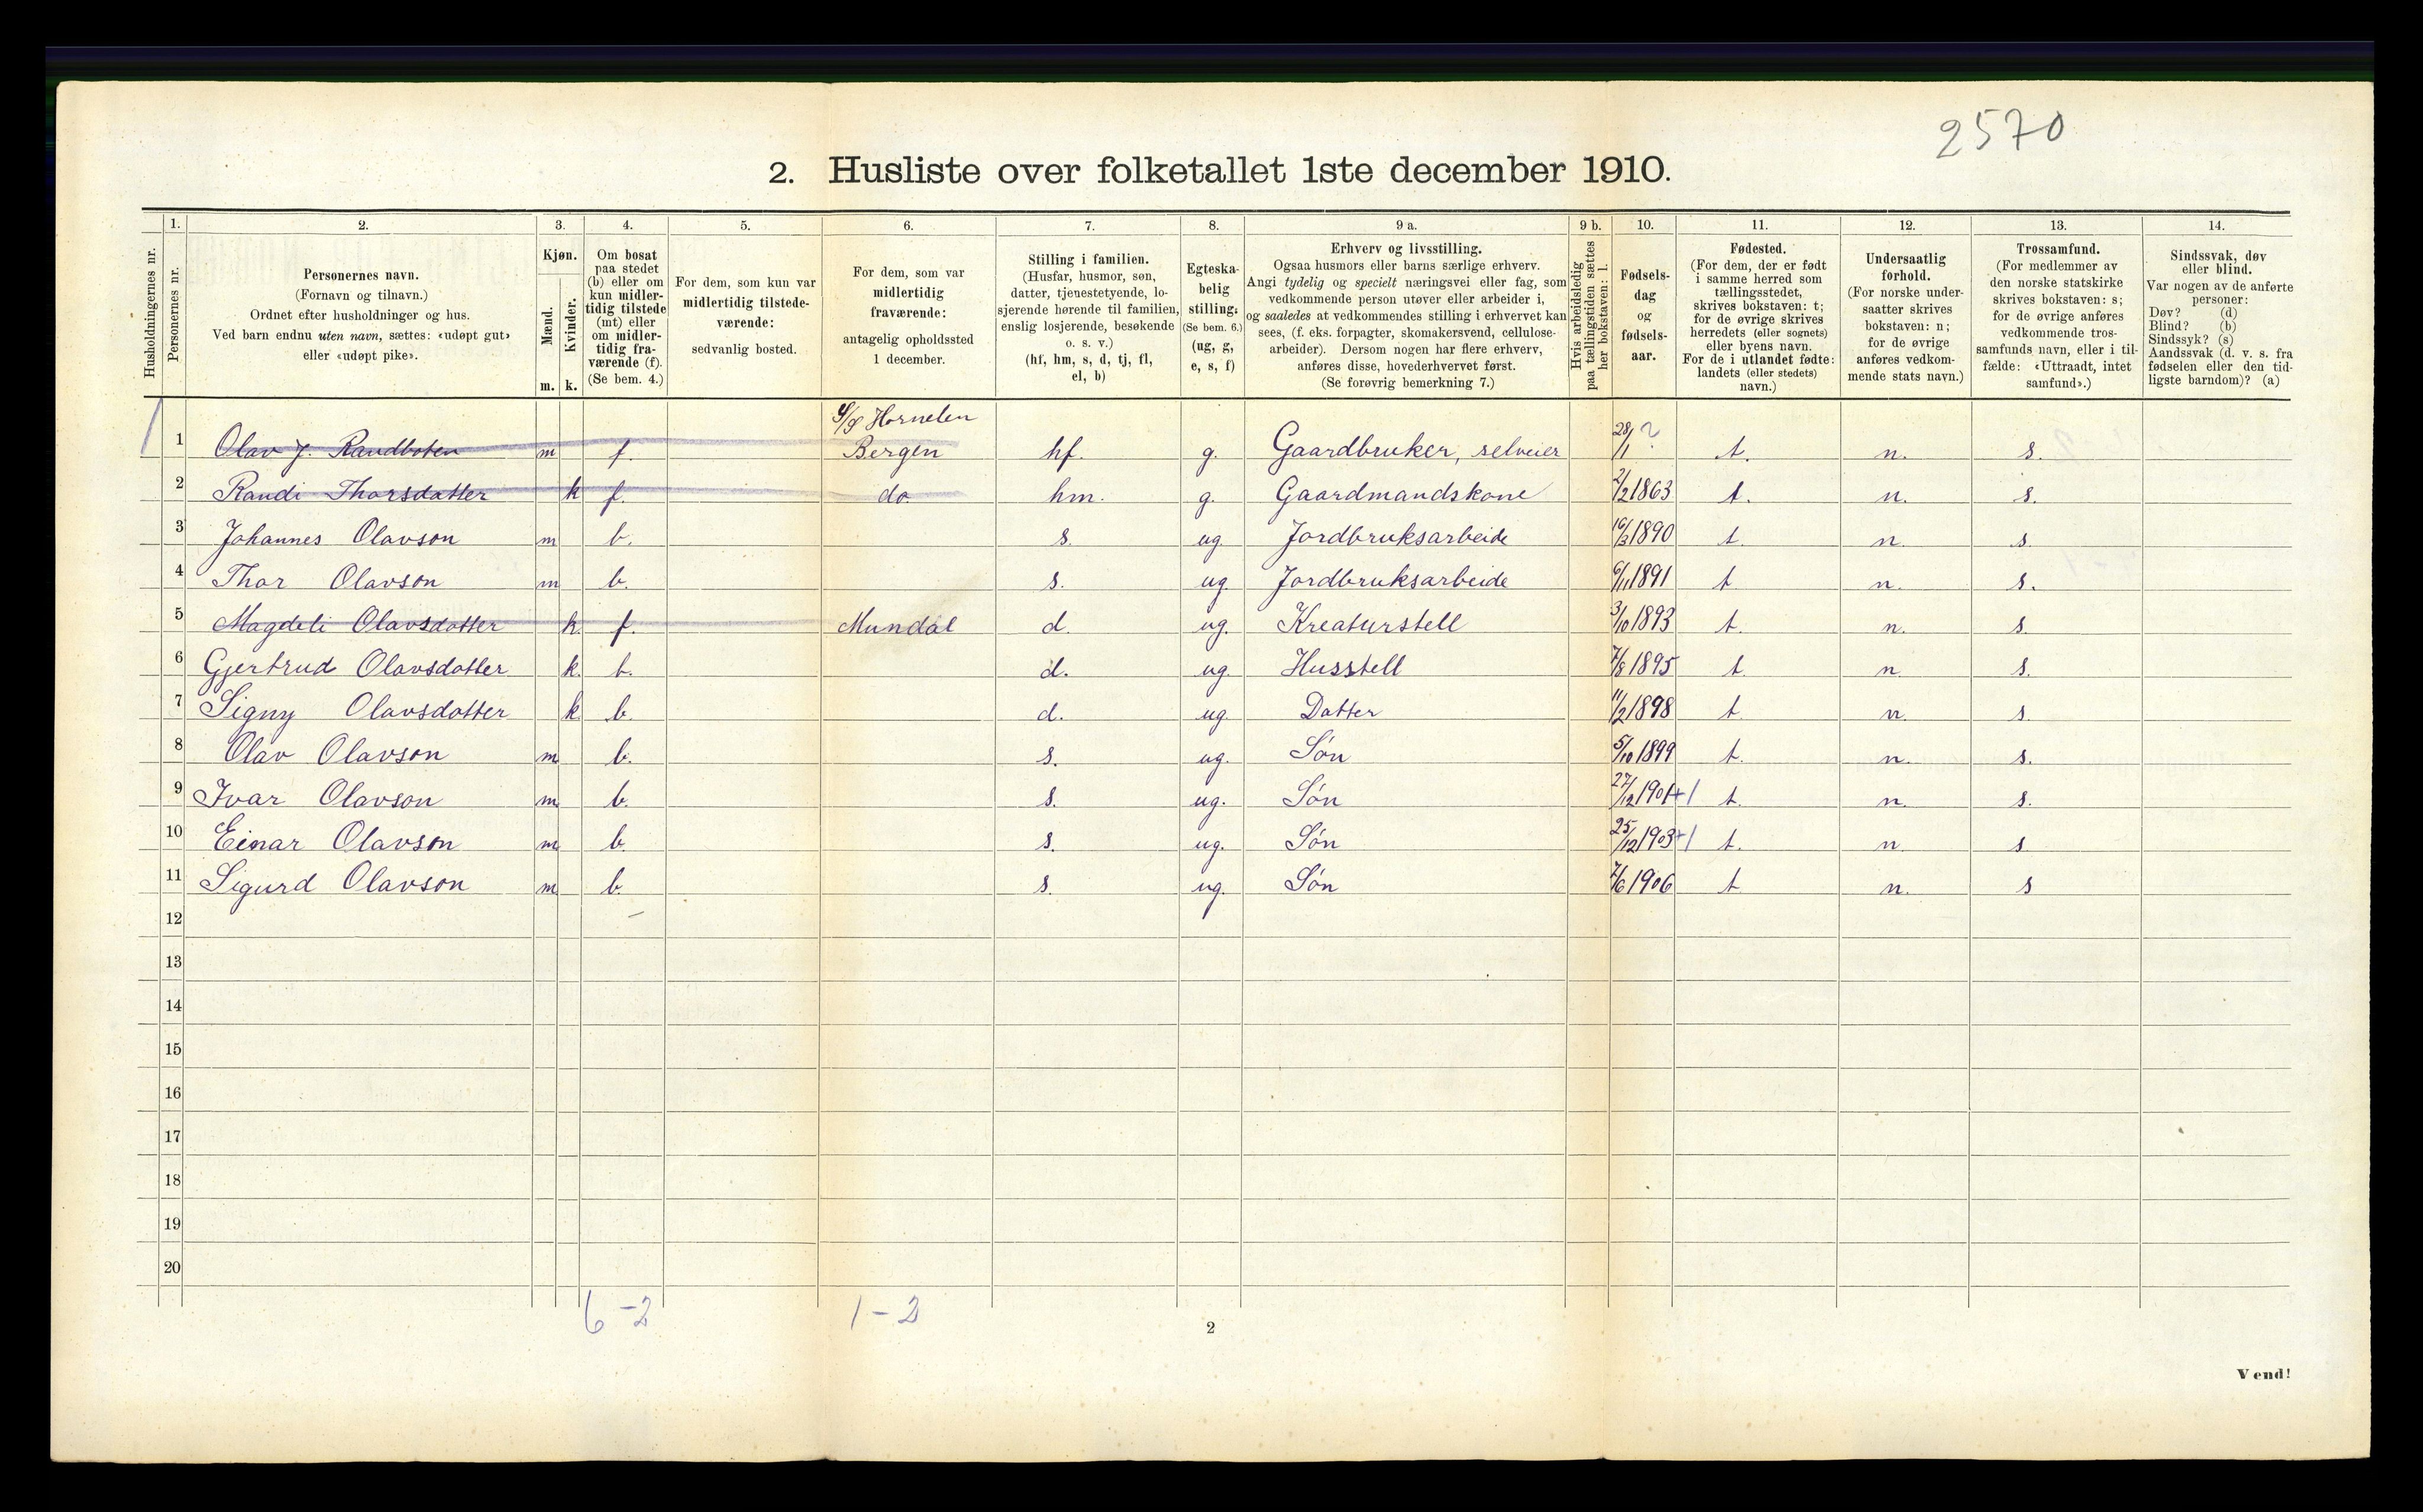 2570
2. Husliste over folketallet 1ste december 1910.
Husholdningernes nr.
1. Personernes nr.
2. Personernes navn. (Fornavn og tilnavn.) Ordnet efter husholdninger og hus. Ved barn endnu uten navn, sættes: «udøpt gut» eller «udøpt pike».
3. Kjøn. Mænd. m. Kvinder. k.
4. Om bosat paa stedet (b) eller om kun midlertidig tilstede (mt) eller om midlertidig fraværende (f). (Se bem. 4.)
5. For dem, som kun var midlertidig tilstedeværende: sedvanlig bosted.
6. For dem, som var midlertidig fraværende: antagelig opholdssted 1 december.
7. Stilling i familien. (Husfar, husmor, søn, datter, tjenestetyende, losjerende hørende til familien, enslig losjerende, besøkende o. s. v.) (hf, hm, s, d, tj, fl, el, b)
8. Egteskabelig stilling. (Se bem. 6.) (ug, g, e, s, f)
9 a. Erhverv og livsstilling. Ogsaa husmors eller barns særlige erhverv. Angi tydelig og specielt næringsvei eller fag, som vedkommende person utøver eller arbeider i, og saaledes at vedkommendes stilling i erhvervet kan sees, (f. eks. forpagter, skomakersvend, cellulosearbeider). Dersom nogen har flere erhverv, anføres disse, hovederhvervet først. (Se forøvrig bemerkning 7.)
9 b. Hvis arbeidsledig paa tællingstiden sættes her bokstaven: l.
10. Fødselsdag og fødselsaar.
11. Fødested. (For dem, der er født i samme herred som tællingsstedet, skrives bokstaven: t; for de øvrige skrives herredets (eller sognets) eller byens navn. For de i utlandet fødte: landets (eller stedets) navn.)
12. Undersaatlig forhold. (For norske undersaatter skrives bokstaven: n; for de øvrige anføres vedkommende stats navn.)
13. Trossamfund. (For medlemmer av den norske statskirke skrives bokstaven: s; for de øvrige anføres vedkommende trossamfunds navn, eller i tilfælde: «Uttraadt, intet samfund».)
14. Sindssvak, døv eller blind. Var nogen av de anførte personer: Døv? (d) Blind? (b) Sindssyk? (s) Aandssvak (d. v. s. fra fødselen eller den tidligste barndom)? (a)
S/S Hornelen
1 Olav J. Randboten m f. Bergen hf. g. Gaardbruker, selveier 28/1 ? t. n. s.
2 Randi Thorsdatter k f. do hm. g. Gaardmandskone 2/2 1863 t. n. s.
3 Johannes Olavson m b. s. ug. Jordbruksarbeide 16/3 1890 t. n. s.
4 Thor Olavson m b. s. ug. Jordbruksarbeide 6/11 1891 t n. s.
5 Magdeli Olavsdatter k. f. Mundal d. ug. Kreaturstell 3/10 1893 t. n. s.
6 Gjertrud Olavsdatter k. b. d. ug. Husstell 7/8 1895 t. n. s.
7 Signy Olavsdatter k b. d. ug. Datter 11/2 1898 t n. s.
8 Olav Olavson m b. s. ug. Søn 5/10 1899 t. n. s.
9 Ivar Olavson m b. s. ug. Søn 27/12 1901 +1 t. n. s.
10 Einar Olavson m b. s. ug. Søn 25/12 1903 +1 t. n. s
11 Sigurd Olavson m b. s. ug. Søn 7/6 1906 t n. s
12
13
14
15
16
17
18
19
20
6-2 1-2
2
Vend!